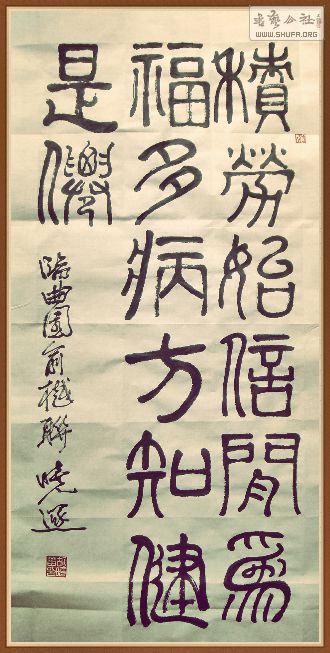 積勞始信閒爲
福多病方知健
是僊
臨曲園俞樾聯 曉
書藝公社
WWW.SHUFA.ORG